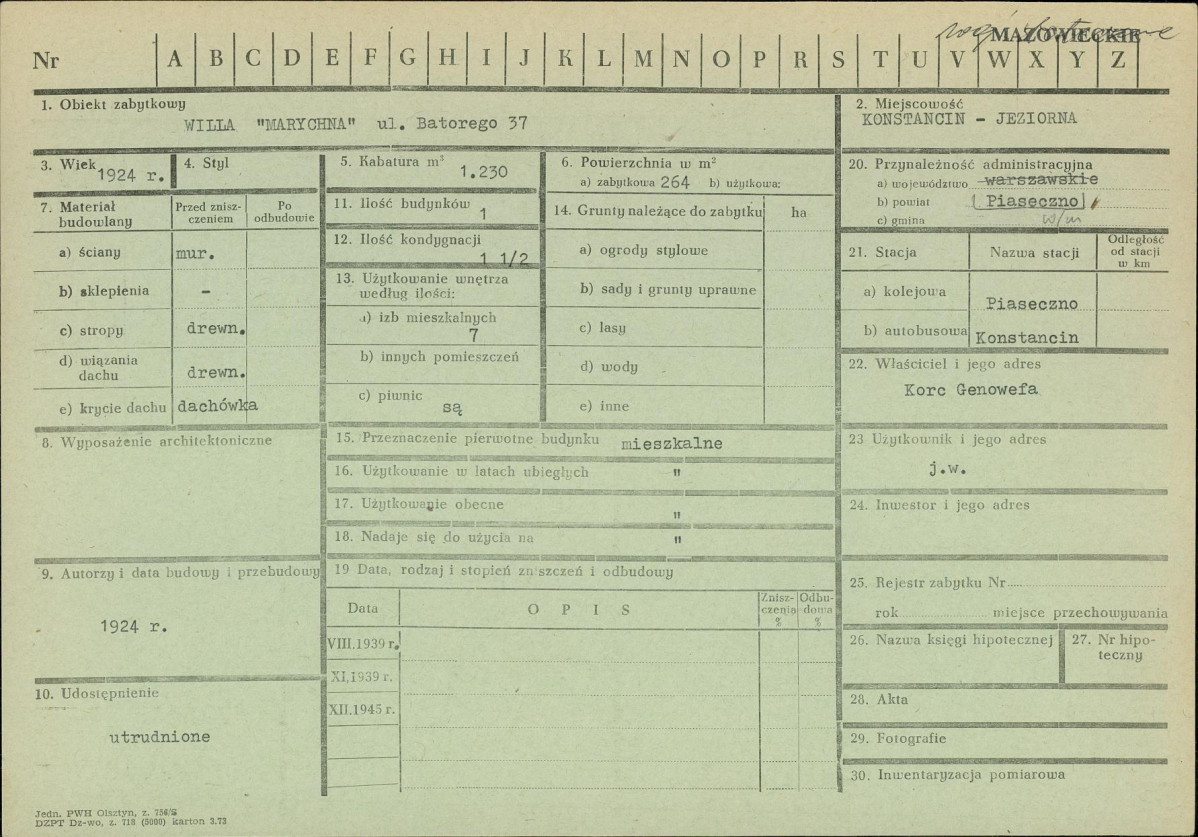 MAZOWIECKIE
Nr A B C D E F G H I J K L M N O P R S T U V W X Y Z
1. Obiekt zabytkowy
WILLA "MARYCHNA" ul. Batorego 37
2. Miejscowość
KONSTANCIN - JEZIORNA
3. Wiek 1924 r.
4. Styl
5. Kabatura m³
1.230
6. Powierzchnia w m²
a) zabytkowa 264 b) użytkowa:
20. Przynależność administracyjna
a) województwo warszawskie
b) powiat Piaseczno
c) gmina w/m
7. Materiał budowlany
Przed zniszczeniem
Po odbudowie
a) ściany mur.
b) sklepienia -
c) stropy drewn.
d) wiązania dachu drewn.
e) krycie dachu dachówka
11. Ilość budynków 1
12. Ilość kondygnacji
1 1/2
13. Użytkowanie wnętrza
według ilości:
a) izb mieszkalnych
7
b) innych pomieszczeń
c) piwnic
są
14. Grunty należące do zabytku ha
a) ogrody stylowe
b) sady i grunty uprawne
c) lasy
d) wody
e) inne
21. Stacja Nazwa stacji Odległość od stacji w km
a) kolejowa Piaseczno
b) autobusowa Konstancin
22. Właściciel i jego adres
Korc Genowefa
8. Wyposażenie architektoniczne
15. Przeznaczenie pierwotne budynku mieszkalne
16. Użytkowanie w latach ubiegłych "
17. Użytkowanie obecne "
18. Nadaje się do użycia na "
23 Użytkownik i jego adres
j.w.
24. Inwestor i jego adres
9. Autorzy i data budowy i przebudowy
1924 r.
19 Data, rodzaj i stopień zniszczeń i odbudowy
Data OPIS Zniszczenia % Odbudowa %
VIII.1939 r.
XI.1939 r.
XII.1945 r.
25. Rejestr zabytku Nr
rok miejsce przechowywania
26. Nazwa księgi hipotecznej
27. Nr hipoteczny
10. Udostępnienie
utrudnione
28. Akta
29. Fotografie
30. Inwentaryzacja pomiarowa
Jedn. PWH Olsztyn, z. 756/S
DZPT Dz-wo, z. 718 (5000) karton 3.73